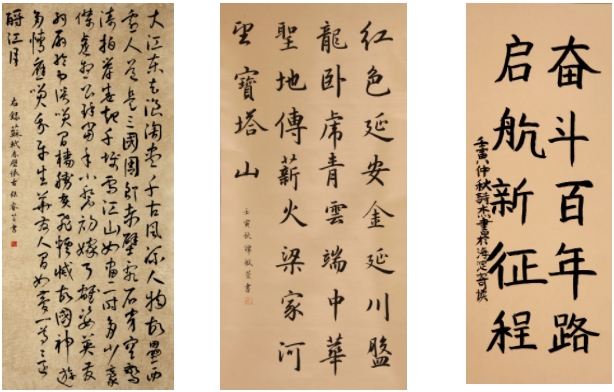 大江东去浪淘尽千古风流人物故垒西
边人道是三国周郎赤壁乱石穿空惊
涛拍岸卷起千堆雪江山如画一时多少豪
杰遥想公瑾当年小乔初嫁了雄姿英发
羽扇纶巾谈笑间樯橹灰飞烟灭故国神游
多情应笑我早生华发人间如梦一尊还
酹江月
右録蘇軾赤壁怀古
红色延安金延川盤
龍卧虎青雲端中華
聖地傳薪火梁家河
里寶塔山
壬寅秋譚書
奋斗百年路
启航新征程
壬寅仲秋詩杰書於海淀